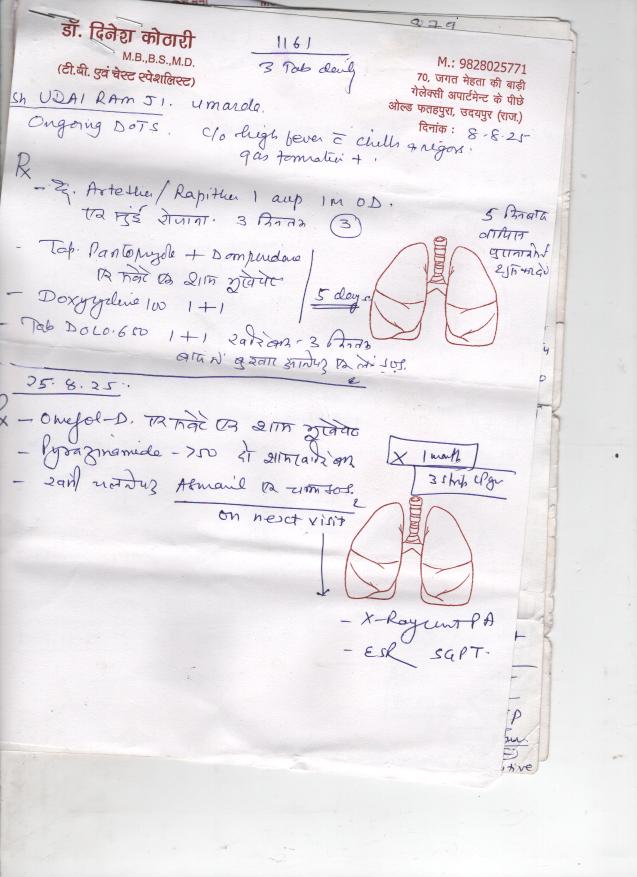 डॉ. दिनेश कोठारी
M.B.,B.S.,M.D.
(टी.बी. एवं चेस्ट स्पेशलिस्ट)
1161
3 Tab daily
M.: 9828025771
70, जगत मेहता की बाड़ी
गेलेक्सी अपार्टमेन्ट के पीछे
ओल्ड फतहपुरा, उदयपुर (राज.)
दिनांक : 8-8-25
Sh UDAI RAM JI. umarda.
Ongoing DOTS. c/o high fever c̄ chills + rigors.
gas formation +.
Rx
Artether/Rapither 1 amp IM OD.
एक सुंई रोजाना. 3 दिन तक (3)
5 दिन बाद
- Tab. Pantoprazole + Domperidone
सवेरे एक शाम भूखे पेट
5 days
- Doxycycline 100 1+1
- Tab DOLO.650 1+1 3 दिन तक
बाद में बुखार आने पर
25.8.25
Rx - Omefol-D. सवेरे एक शाम भूखे पेट
- Pyrazinamide - 750 दो
x 1 month
3 strip
चलने पर Asmail एक
on next visit
- X-Ray chest PA
- ESR SGPT.